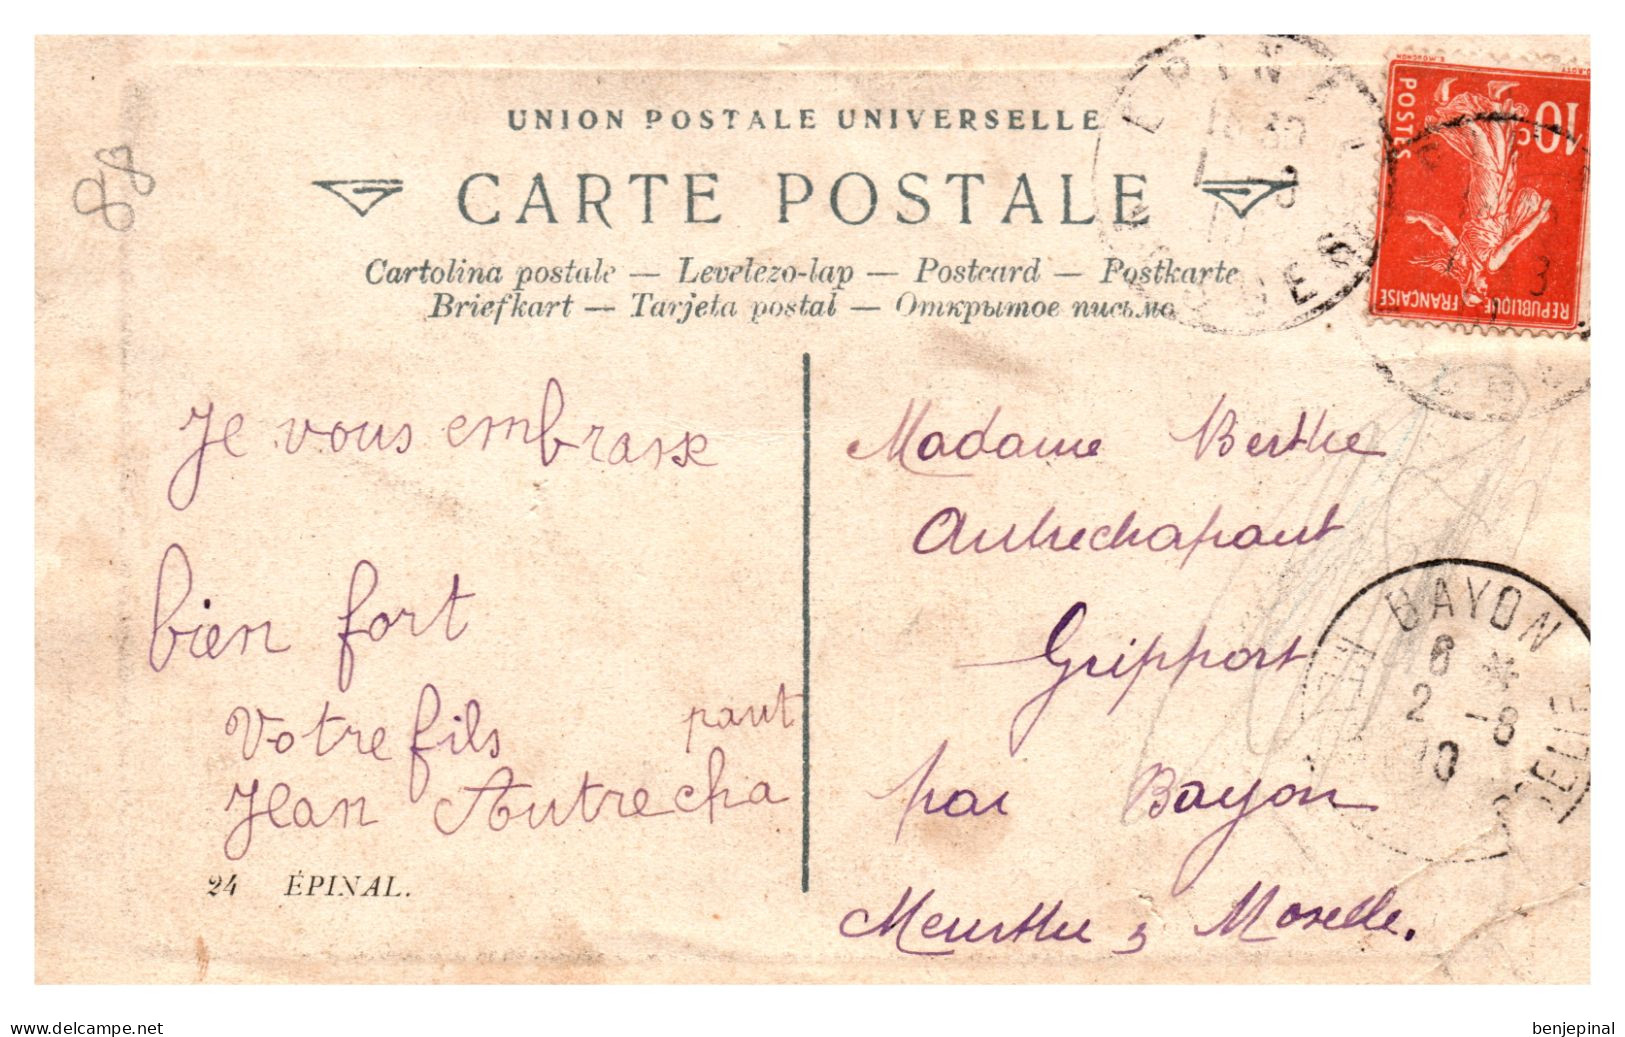 UNION POSTALE UNIVERSELLE
CARTE POSTALE
Cartolina postale — Levelezo-lap — Postcard — Postkarte
Briefkart — Tarjeta postal — Открытое письмо
88
10c
POSTES
REPUBLIQUE FRANÇAISE
EPINAL
VOSGES
Je vous embrasse
bien fort
Votre fils
Jean Autrecha
paut
24 ÉPINAL.
Madame Berthe
Autrechapaut
Grippport
par Bayon
Meurthe & Moselle.
BAYON
6 *
2 -8
10
MEURTHE MOSELLE
delcampe.net
benjepinal